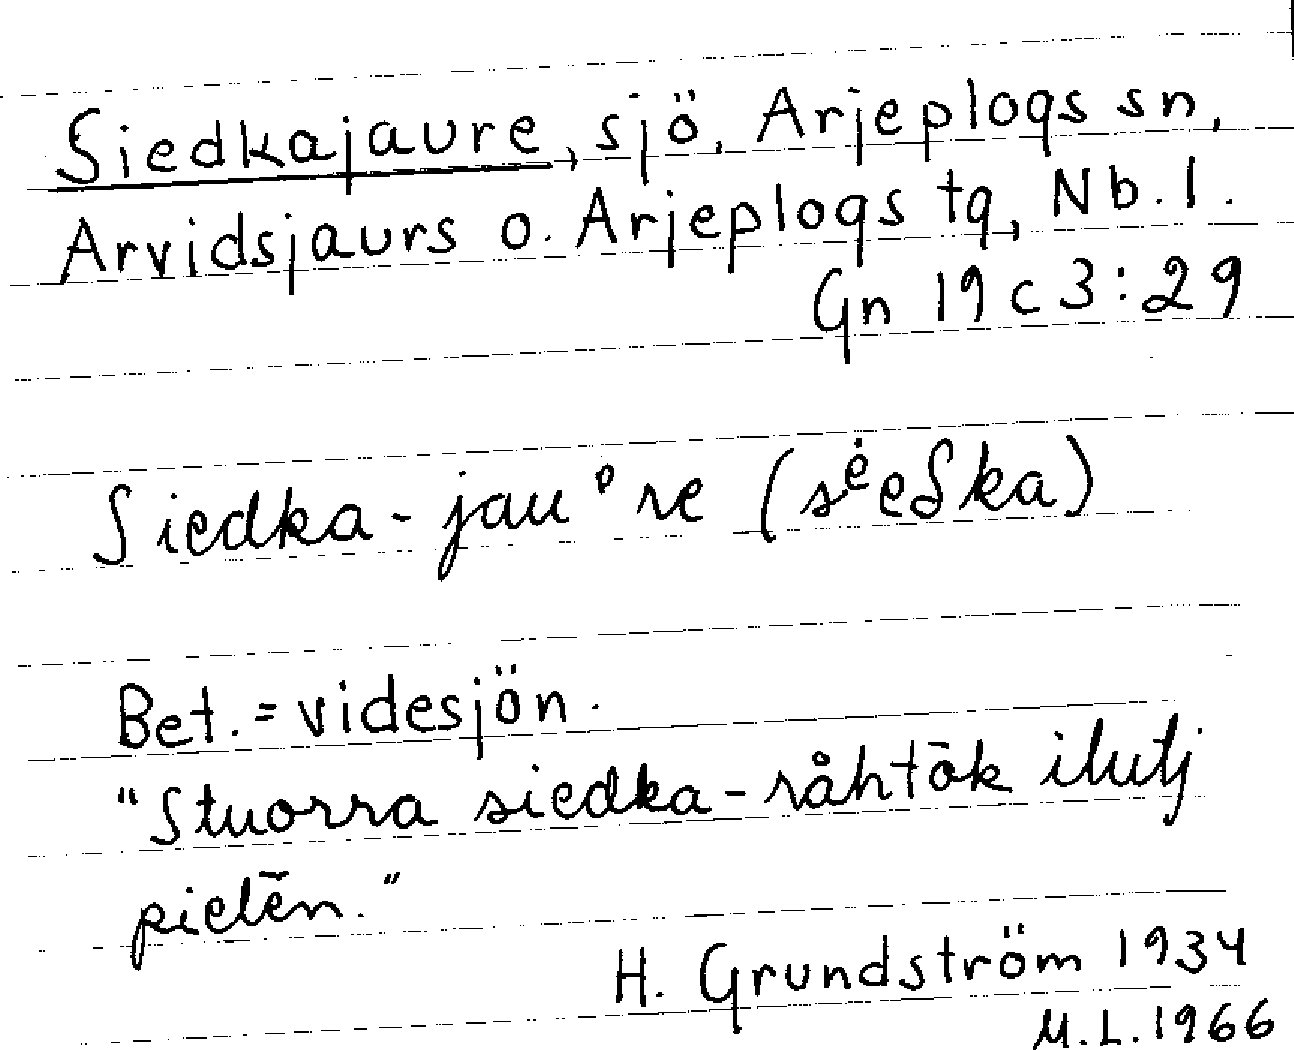 Siedkajaure, sjö, Arjeplogs sn,
Arvidsjaurs o. Arjeplogs tg, Nb. l.
Gn 19 c 3:29
Siedka-jauᵒre (sėeδka)
Bet. = videsjön.
"Stuorra siedka-råhtōk ilutj
pielēn."
H. Grundström 1934
M.L. 1966